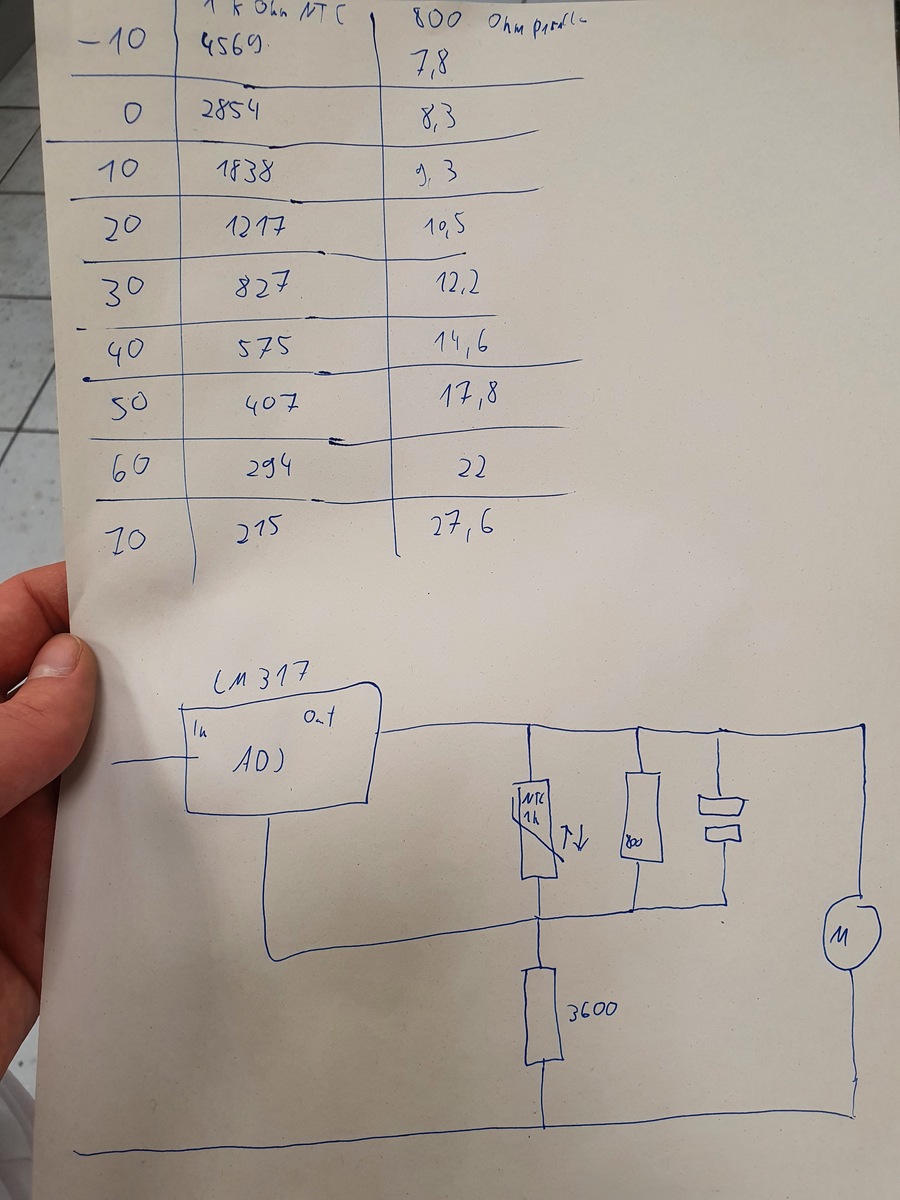 1 k Ohm NTC 800 Ohm
-10 4569 7,8
0 2854 8,3
10 1838 9,3
20 1217 10,5
30 827 12,2
40 575 14,6
50 407 17,8
60 294 22
70 215 27,6
LM317
In Out
ADJ
NTC
1k
800
M
3600